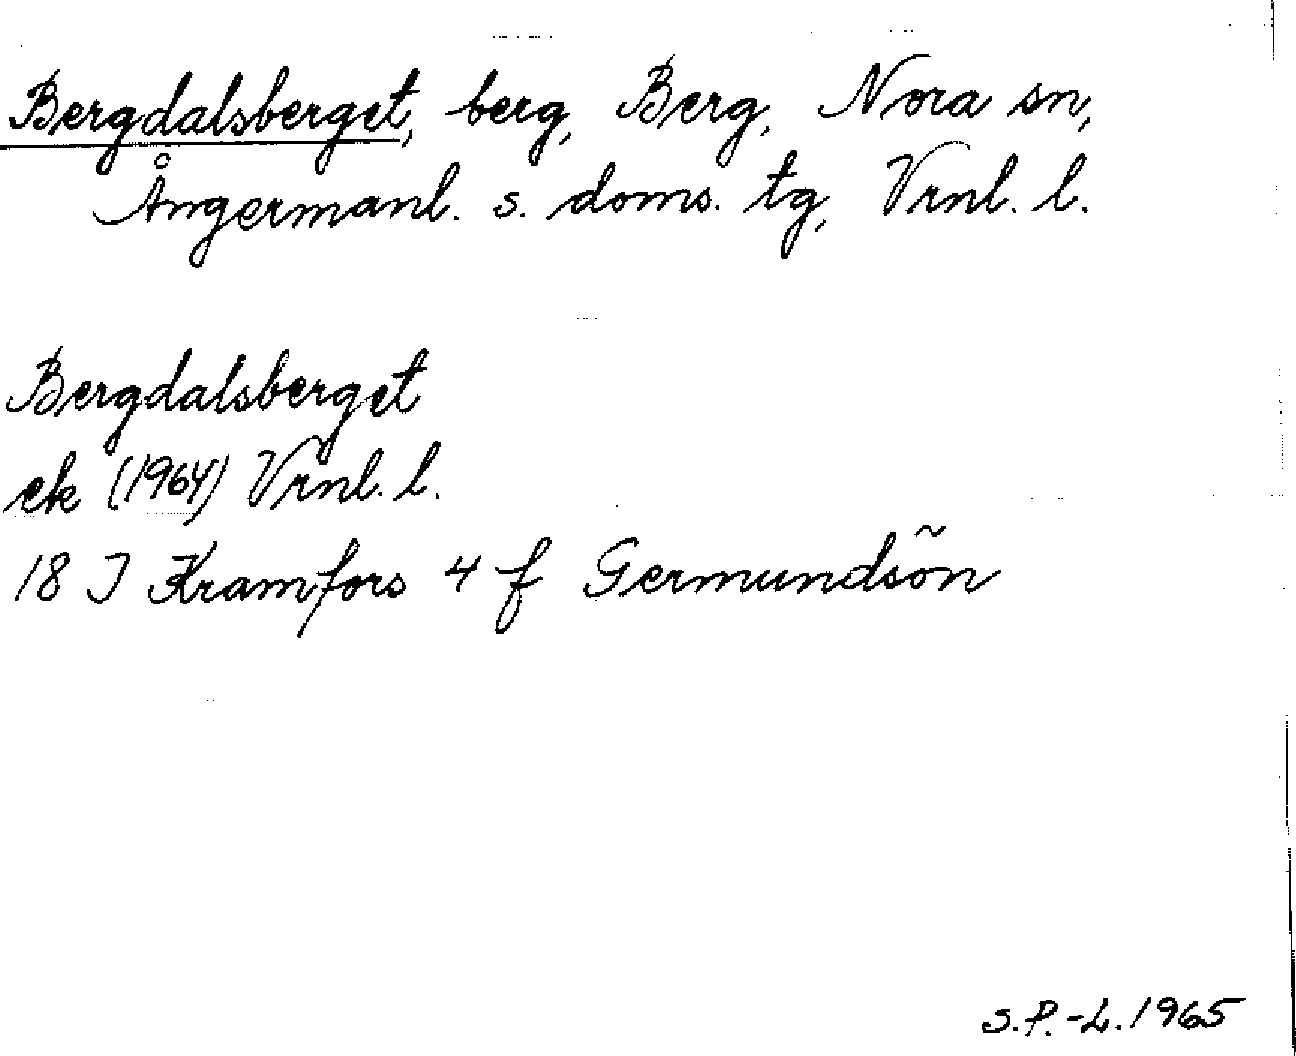 Bergdalsberget, berg, Berg, Nora sn,
Ångermanl. s. doms. tg, Vrnl. l.
Bergdalsberget
ek (1964) Vrnl. l.
18 J Kramfors 4 f Germundsön
S.P.-L. 1965